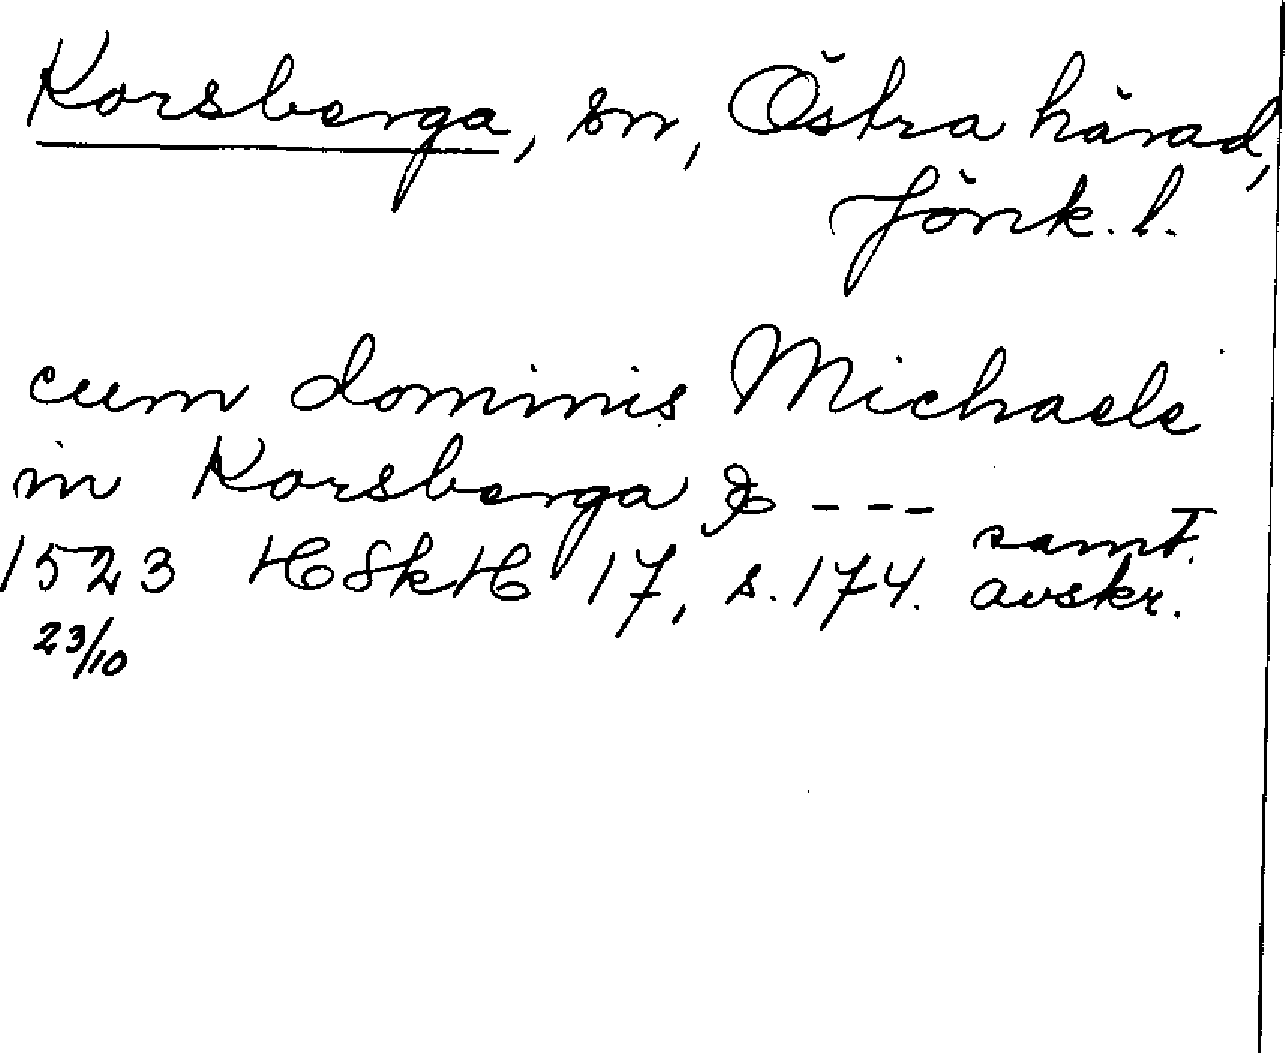 Korsberga, sn, Östra härad,
Jönk. l.
cum dominis Michaele
in Korsberga & ---
1523 HSkH 17, s. 174. samt. avskr.
23/10